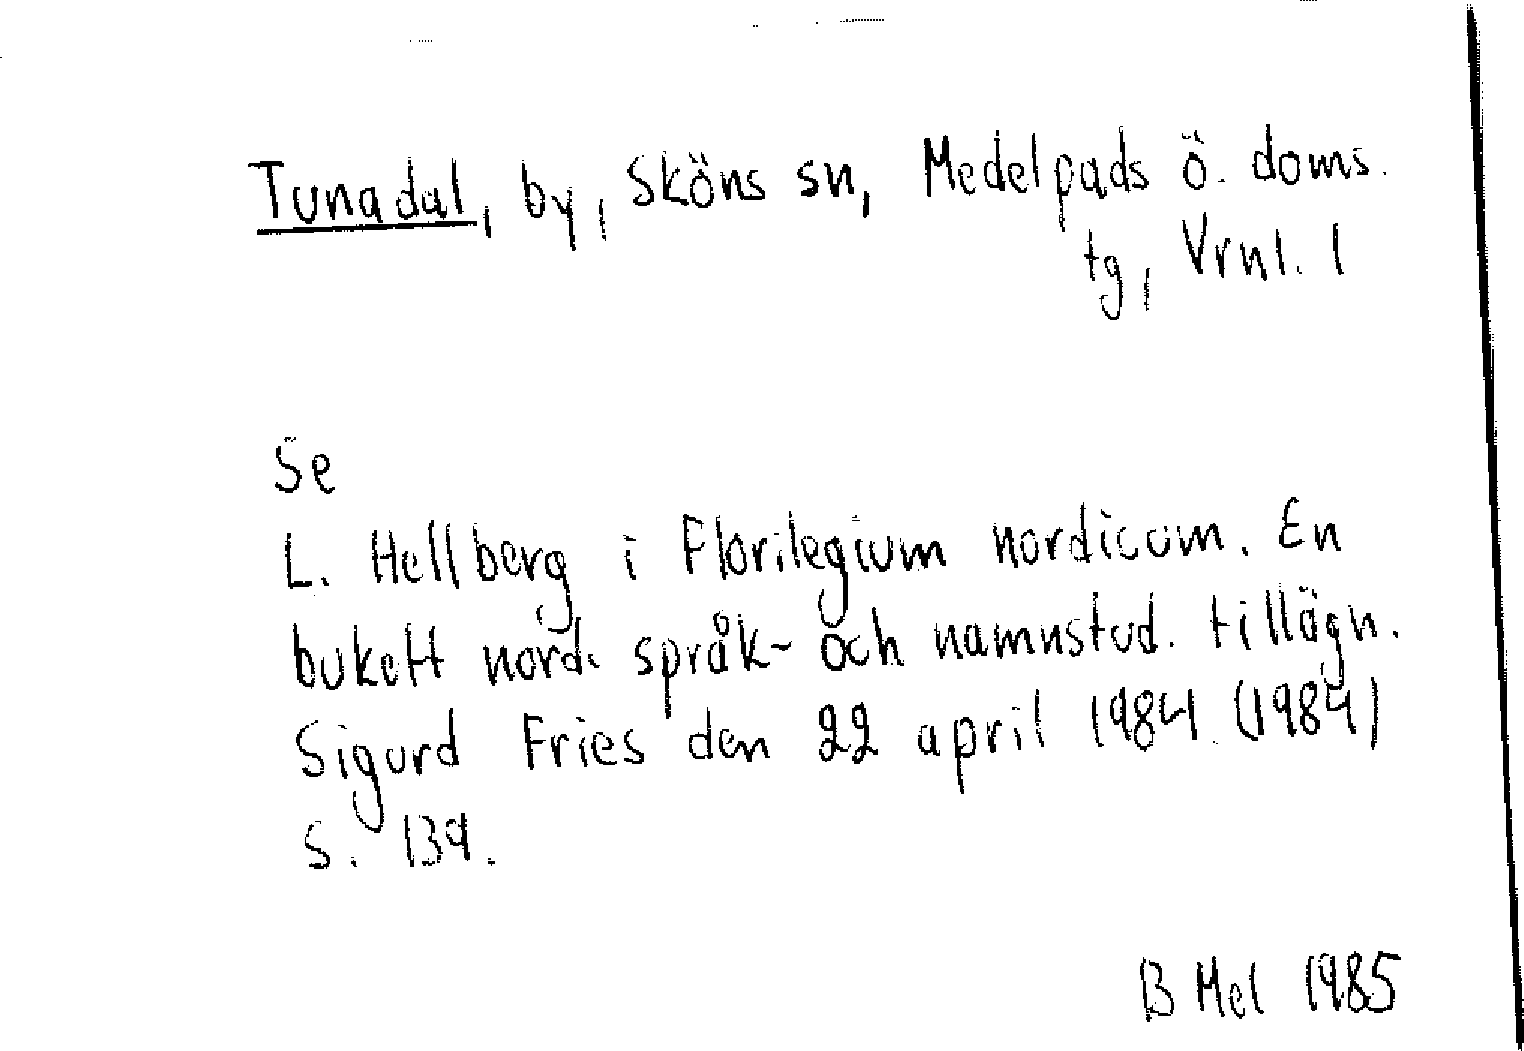 Tunadal, by, Sköns sn, Medelpads ö. doms.
tg, Vrnl. l
Se
L. Hellberg i Florilegium nordicum. En
bukett nord. språk- och namnstud. tillägn.
Sigurd Fries den 22 april 1984. (1984)
S. 139.
B Mel 1985